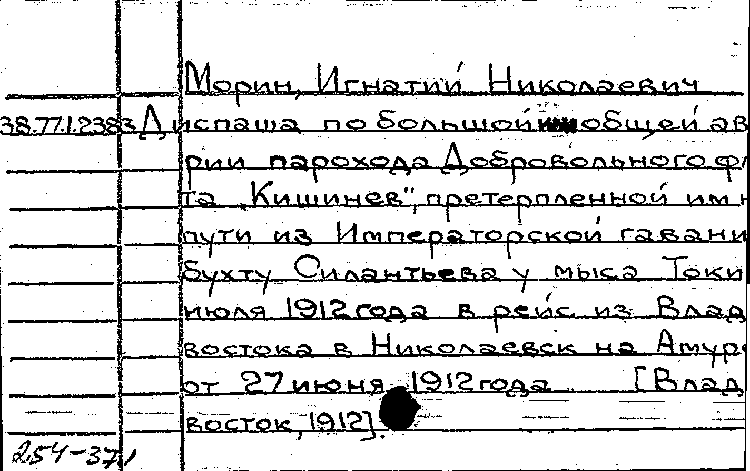 Морин, Игнатий Николаевич
38.77.1.2383 Диспаша по большой общей ав
рии парохода Добровольного фл
та „Кишинев", претерпленной им н
пути из Императорской гавани
бухту Силантьева у мыса Токи
июля 1912 года в рейс из Влад
востока в Николаевск на Амуре
от 27 июня 1912 года [Влад
восток, 1912].
254-371